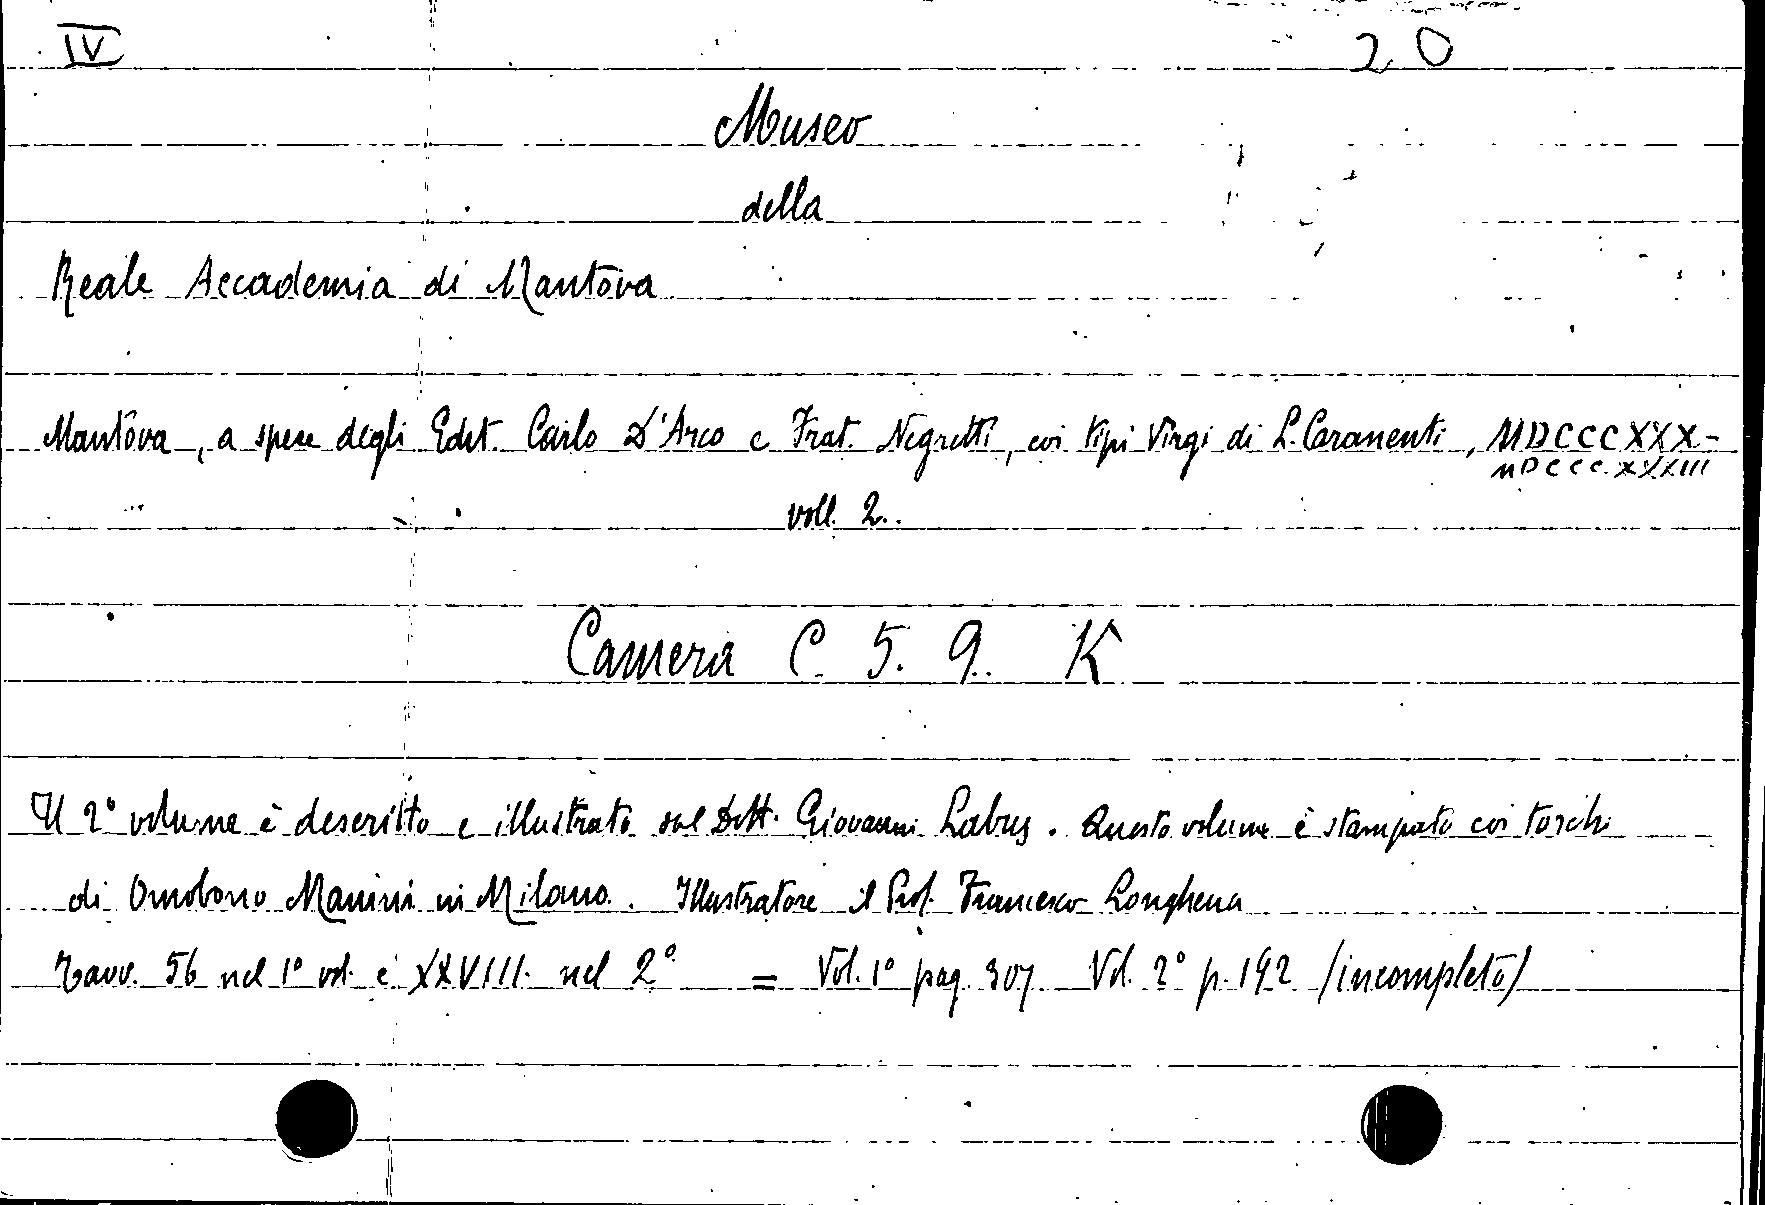 IV 20
Museo
della
Reale Accademia di Mantova
Mantova, a spese degli Edit. Carlo D'Arco e Frat. Negretti, coi tipi Virgi di L. Caranenti, MDCCCXXX-
MDCCCXXXIII
voll. 2.
Camera C. 5. 9. K
Il 2° volume è descritto e illustrato dal Dott. Giovanni Labus. Questo volume è stampato coi torchi
di Omobono Manini in Milano. Illustratore il Prof. Francesco Longhena
Tavv. 56 nel 1° vol. e XXVIII. nel 2° = Vol. 1° pag. 307 Vol. 2° p. 192 (incompleto)